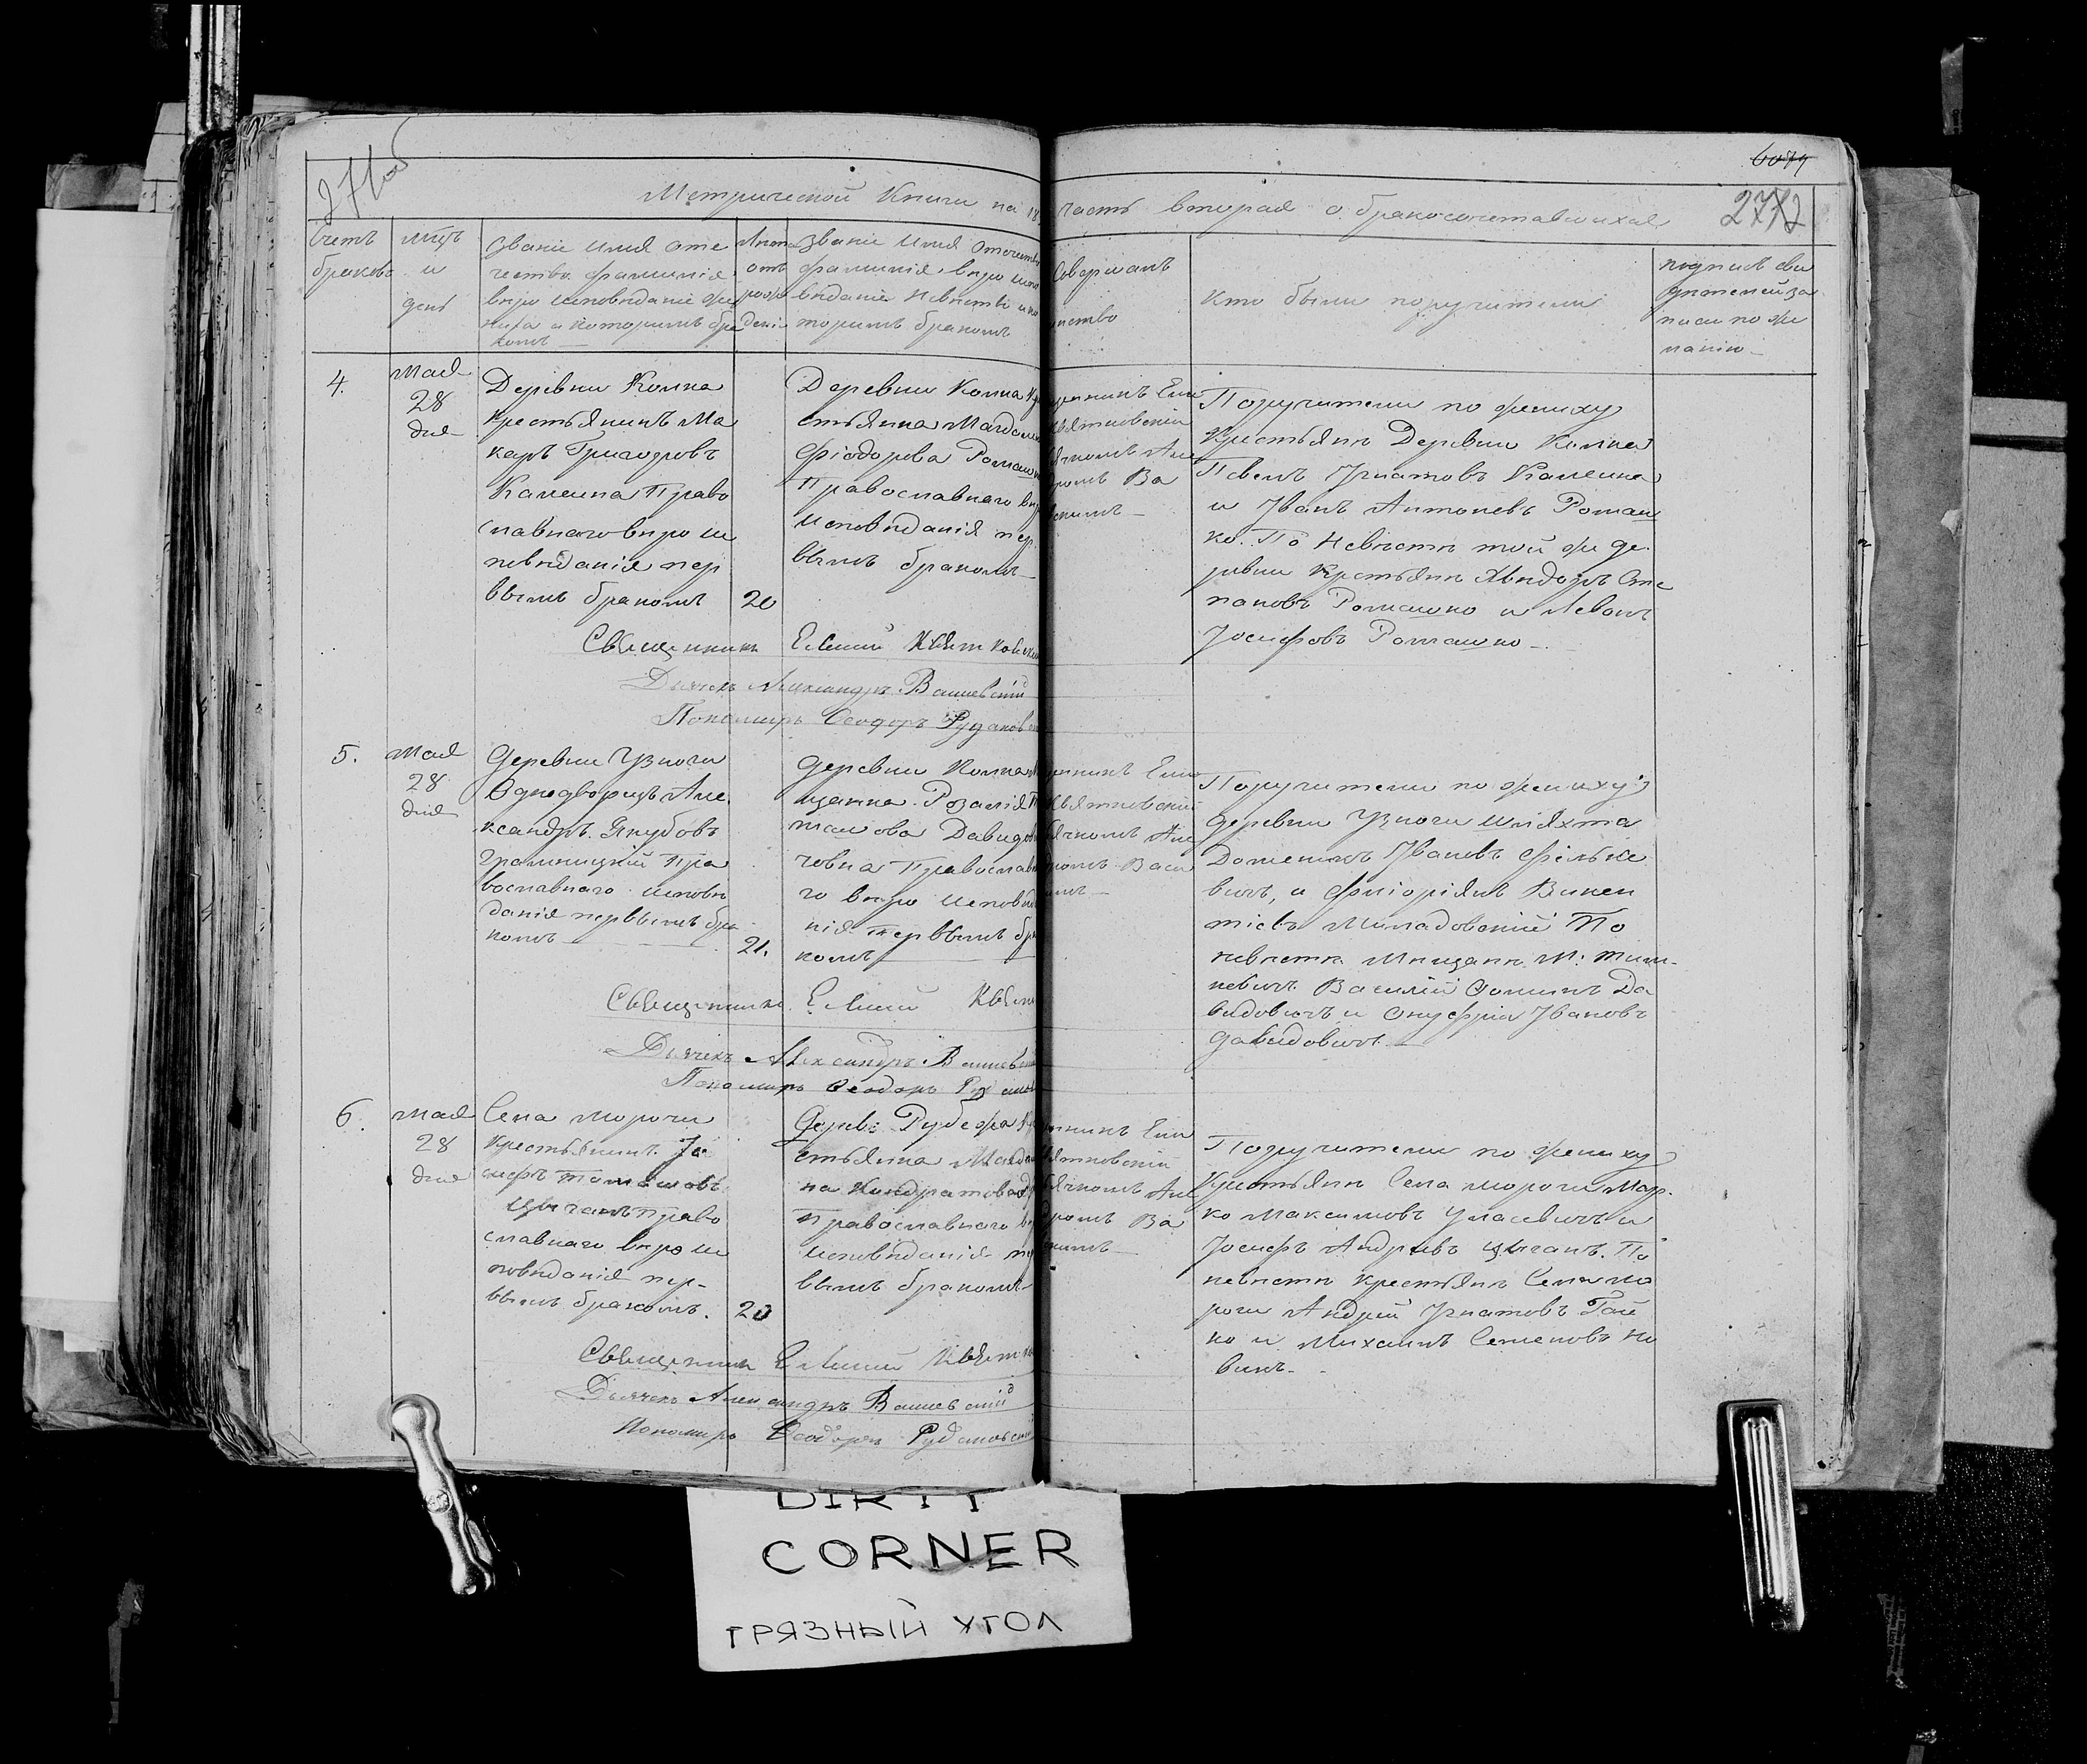 271об
6079
2772
Метрической Книги на 18
часть вторая о бракосочетавшихся
Счетъ
браковъ
мцъ
и
день
званіе имя оте
чество фамилія
веро исповеданіе же
ниха и которимъ бра
комъ
Лета
отъ
рож
денія
Званіе имя Отечество
фамилія веро испо
веданіе Невесты и ко
торимъ бракомъ
Совершалъ
инство
Кто были поручители
подписъ сви
детелей за
писи по же
ланію
4.
мая
28
дня
Деревни Колна
Крестьянинъ Ма
каръ Григоровъ
Калешка Право
славнаго веро ис
поведанія пер
вымъ бракомъ
20
Деревни Колна Кре
стьянка Магдалина
Фіодорова Роташко
Православнаго веро
исповеданія пер
вымъ бракомъ
щенникъ Ели
Квятковскій
ячкомъ Але
дромъ Ва
Поручители по жениху
Крестьяне Деревни Колна
Павелъ Игнатовъ Калешка
и Иванъ Антоневъ Роташ
ко. По Невесте той же де
ревни Крестьяне Хведоръ Сте
пановъ Роташко и Левонъ
Іосифовъ Роташко
Священникъ Елисей Квятковскій
Дьячекъ Александръ Вашевскій
Пономарь Феодоръ Рудаков
5.
мая
28
дня
Деревни Узноги
Однодворецъ Але
ксандръ Якубовъ
Православнаго исповe
данія первымъ бра
комъ
21.
деревни Колна М
щанка Розалія
машова Давидо
човна Православна
го веро исповеда
нія первымъ бра
комъ
щенникъ Ели
Квятковскій
ячкомъ Але
дромъ Ваш
Поручители по жениху
деревни Узноги шляхта
Доменикъ Ивановъ
вичъ, и Флоріянъ Викен
тіевъ Миладовскій По
невесте Мещане М: Тим
Василій Фоминъ Да
видовичъ и Онуфрій Ивановъ
Давидовичъ
Священникъ Елисей Квят
Дьячекъ Александръ Вашевскій
Пономарь Феодоръ
6.
мая
28
дня
Села Морочи
Крестьянинъ Іо
сифъ Томашовъ
Цыганъ Право
славнаго веро ис
поведанія пер-
вымъ бракомъ.
20
Дерев: Рубежа Кре
стьянка Магдали
на Кондратова
Православнаго ве
исповеданія пер
вымъ бракомъ
щенникъ Ели
Квятковскій
ячкомъ Але
дромъ Ва
Поручители по жениху
Крестьяне Села Морочи Мар
ко Максимовъ Уласевичъ и
Іосифъ Андреевъ Цыганъ. По
невесте крестьяне Села Мо
рочи Андрей Игнатовъ Гай
ко и Михаилъ Семеновъ Но
викъ
Священникъ Елисей Квятк
Дьячекъ Александръ Вашевскій
Пономарь Феодоръ Рудаковск
DIRTY
CORNER
ГРЯЗНЫЙ УГОЛ